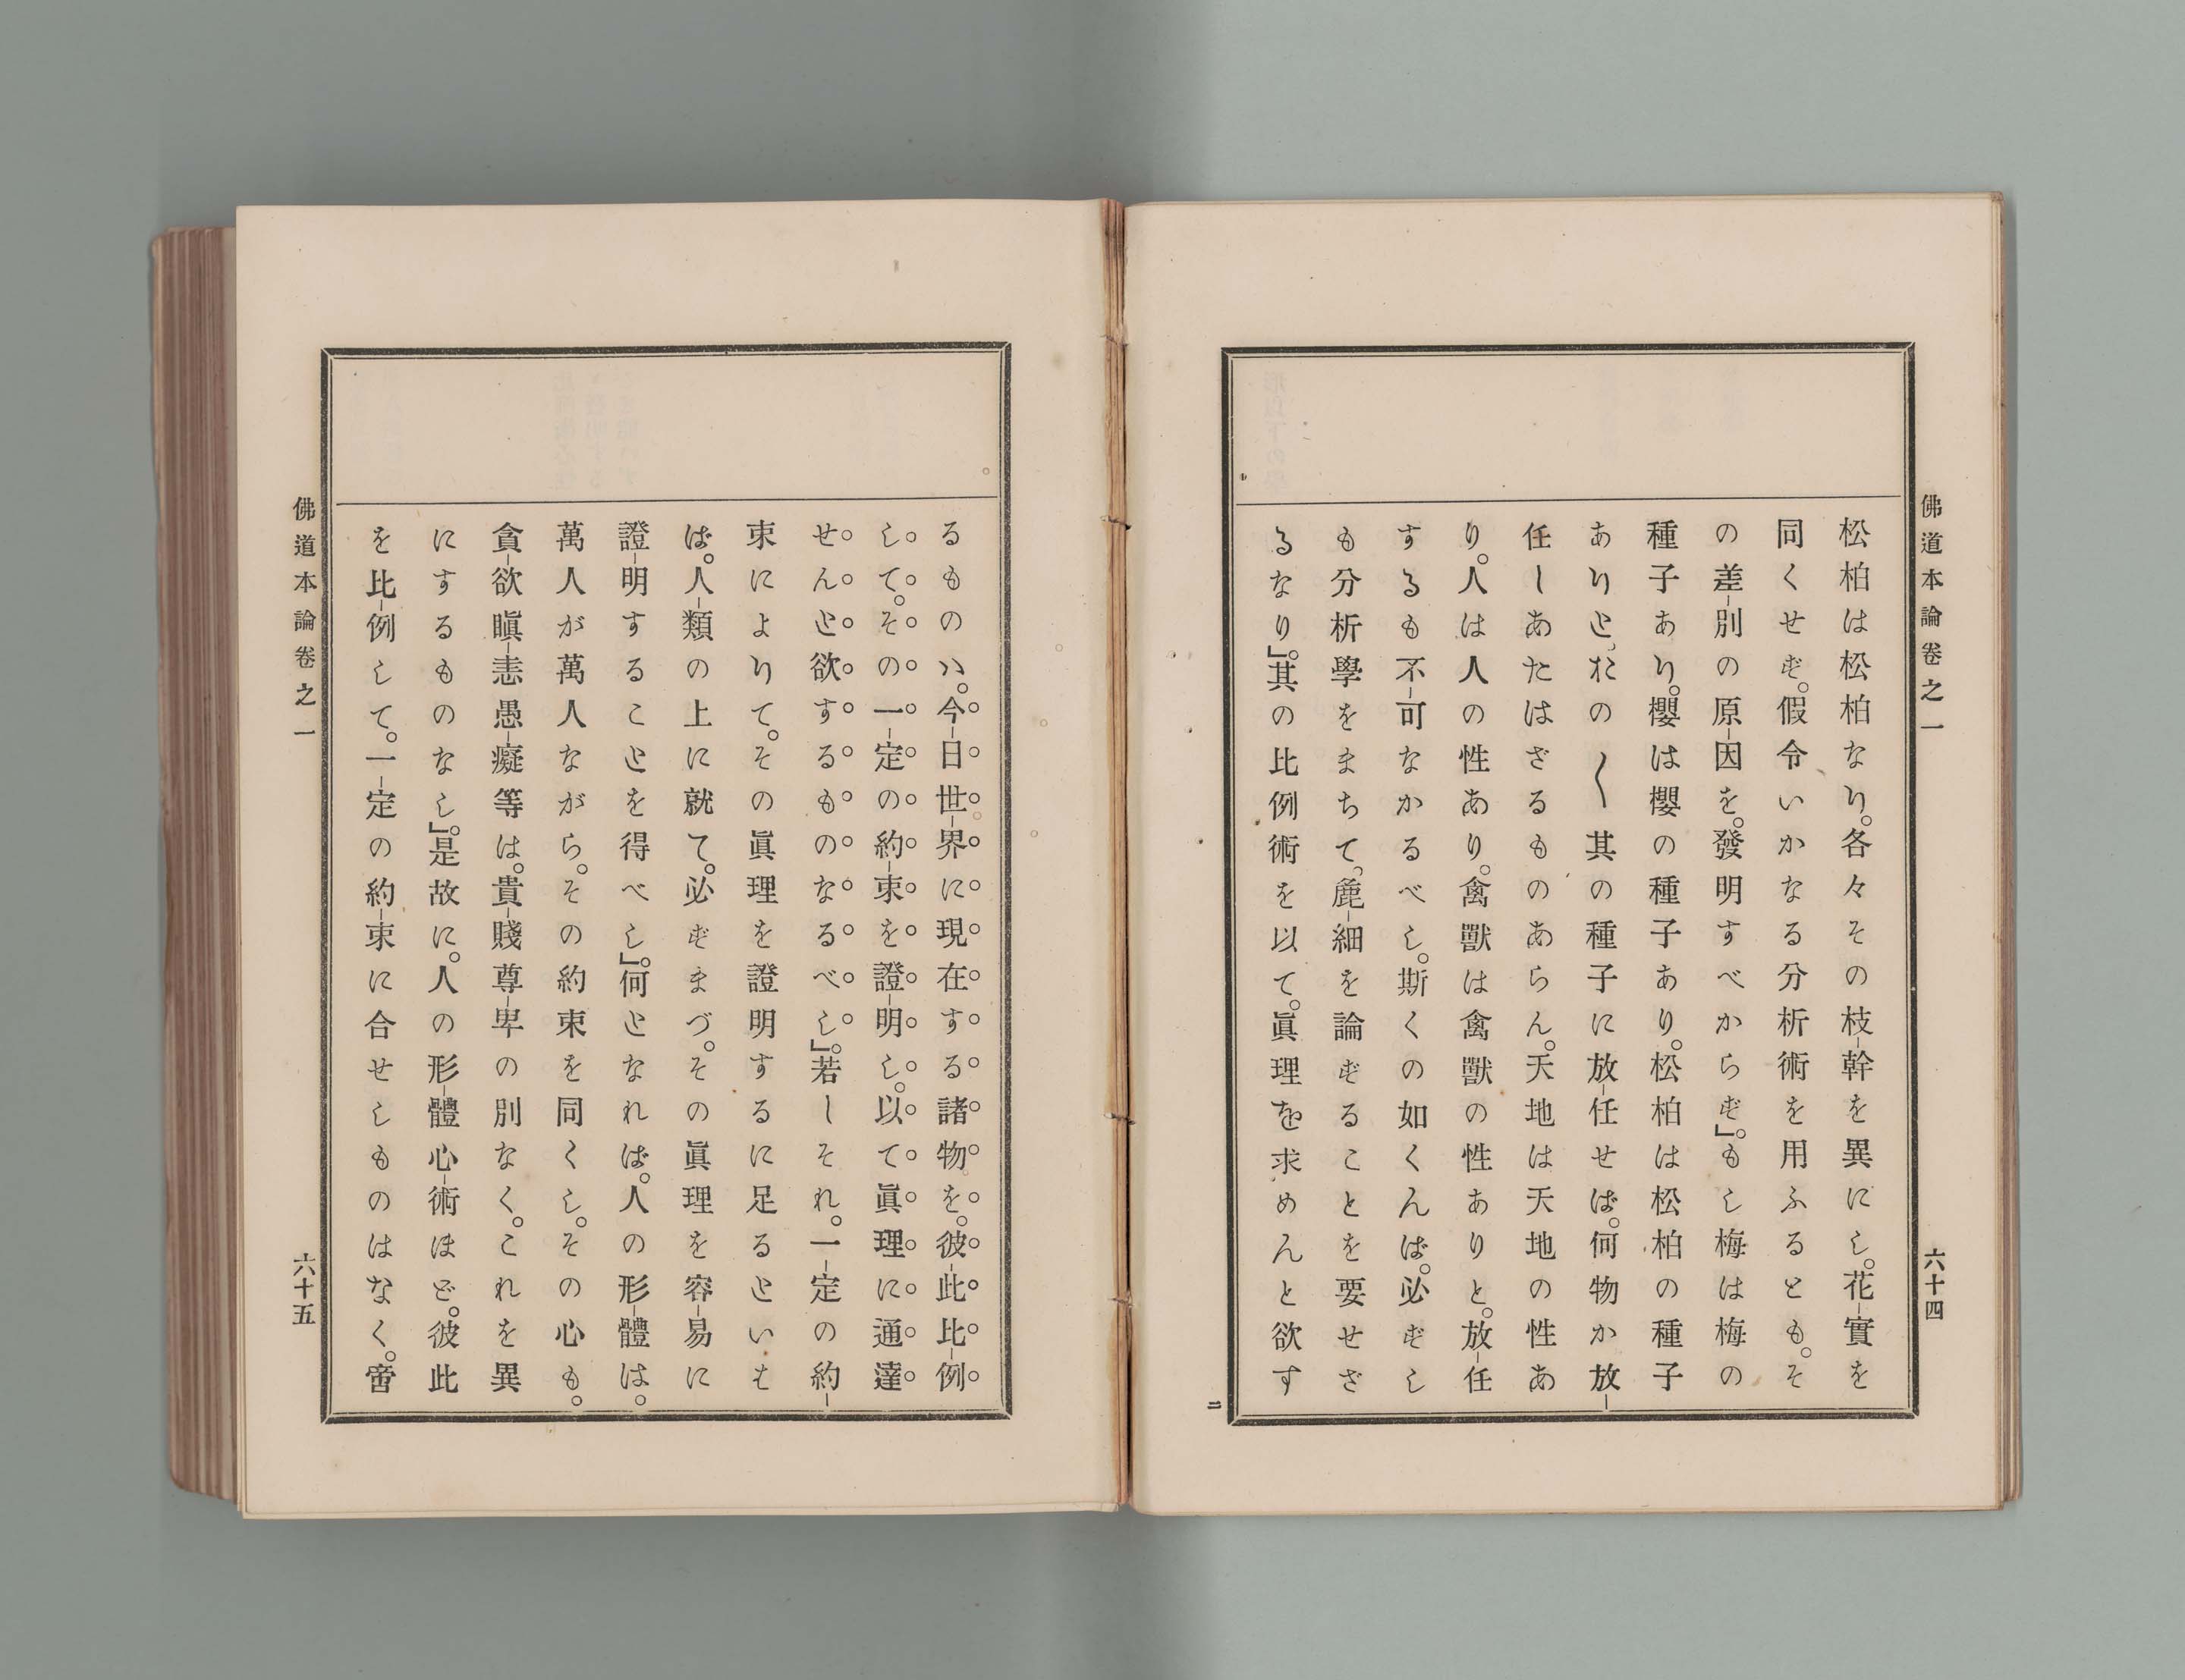 佛道本論卷之一
六十四
松柏は松柏なり。各々その枝幹を異にし。花實を
同くせず。假令いかなる分析術を用ふるとも。そ
の差別の原因を。發明すべからず。」もし梅は梅の
種子あり。櫻は櫻の種子あり。松柏は松柏の種子
ありと、おの〱其の種子に放任せば。何物か放
任しあたはざるものあらん。天地は天地の性あ
り。人は人の性あり。禽獸は禽獸の性ありと。放任
するも不可なかるべし。斯くの如くんば。必ずし
も分析學をまちて、麁細を論ずることを要せざ
るなり。」其の比例術を以て。眞理を求めんと欲す
二
るものハ。今日世界に現在する諸物を。彼此比例
して。その一定の約束を證明し。以て眞理に通達
せんと欲するものなるべし。」若しそれ。一定の約
束によりて。その眞理を證明するに足るといは
ば。人類の上に就て。必ずまづ。その眞理を容易に
證明することを得べし。」何となれば。人の形體は。
萬人が萬人ながら。その約束を同くし。その心も。
貪欲瞋恚愚癡等は。貴賤尊卑の別なく。これを異
にするものなし。」是故に。人の形體心術ほど。彼此
を比例して。一定の約束に合せしものはなく。啻
佛道本論卷之一
六十五